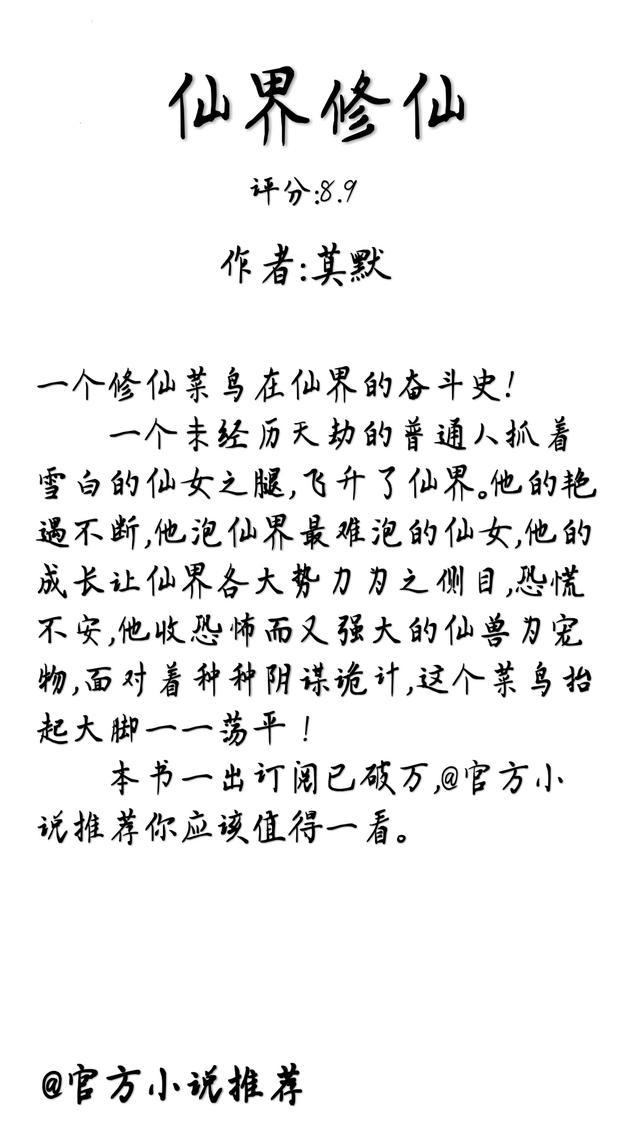 仙界修仙
评分:8.9
作者:莫默
一个修仙菜鸟在仙界的奋斗史!
一个未经历天劫的普通人抓着
雪白的仙女之腿,飞升了仙界。他的艳
遇不断,他泡仙界最难泡的仙女,他的
成长让仙界各大势力为之侧目,恐慌
不安,他收恐怖而又强大的仙兽为宠
物,面对着种种阴谋诡计,这个菜鸟抬
起大脚一一荡平!
本书一出订阅已破万,@官方小
说推荐你应该值得一看。
@官方小说推荐